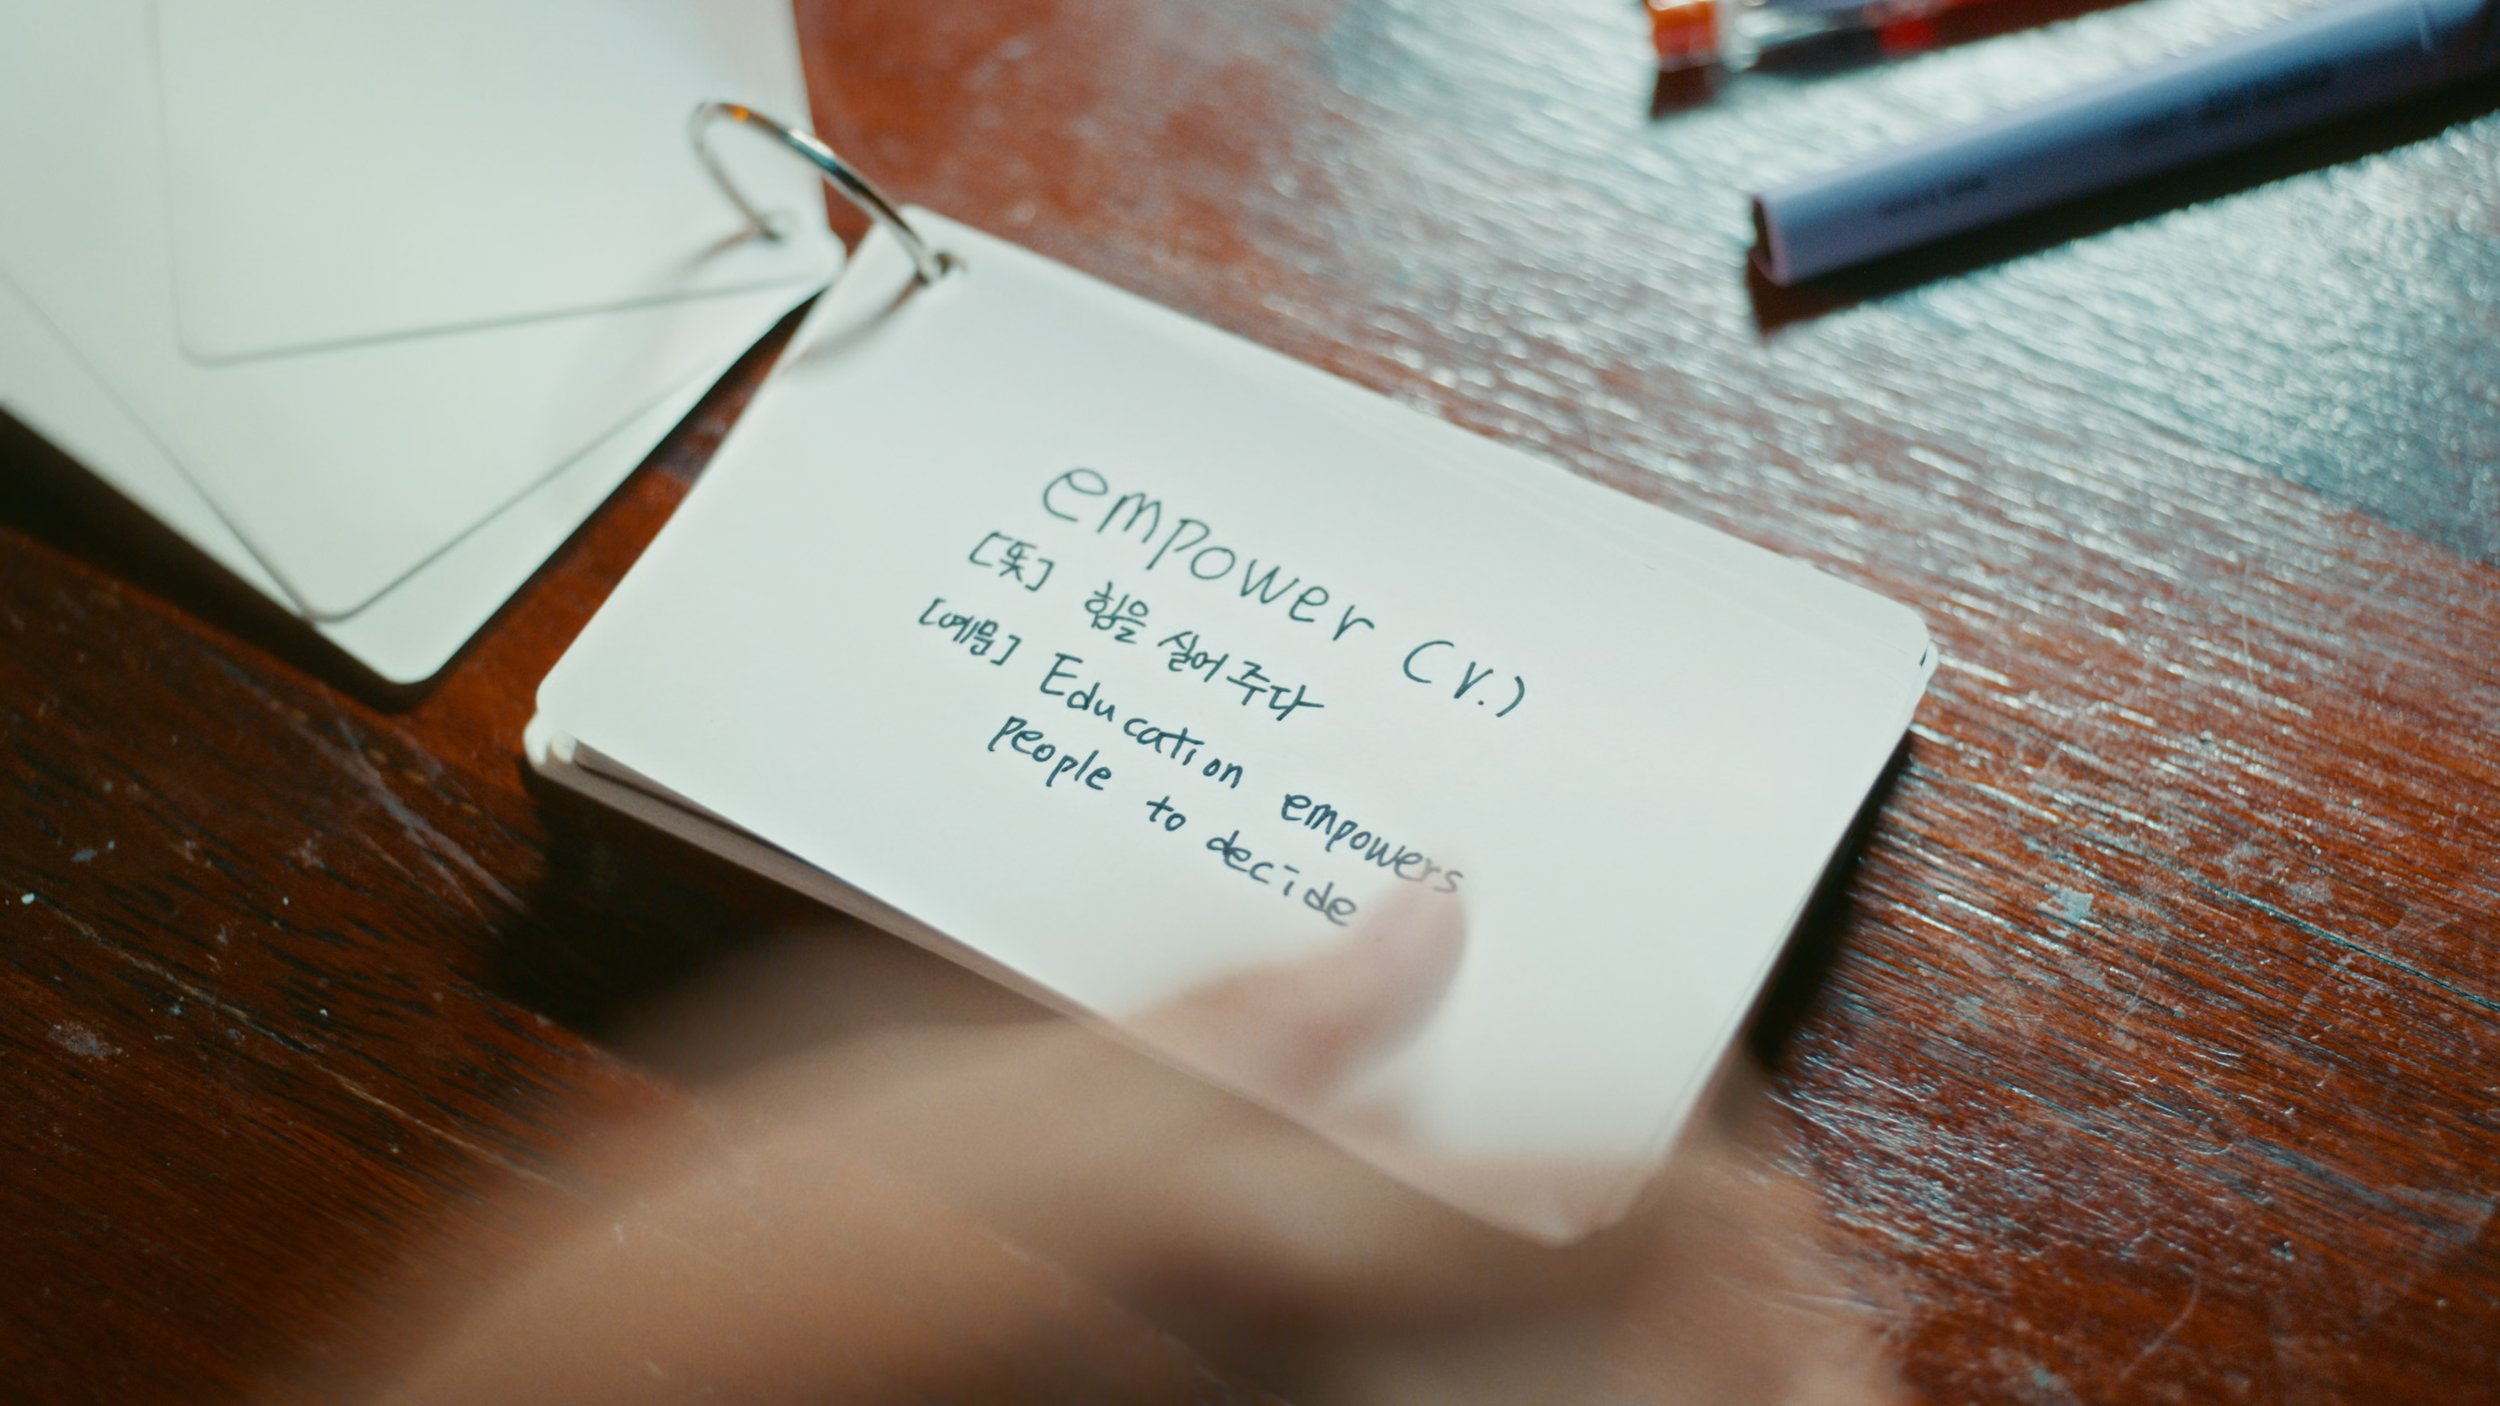 empower (v.)
[뜻] 힘을 실어주다
[예문] Education empowers
people to decide